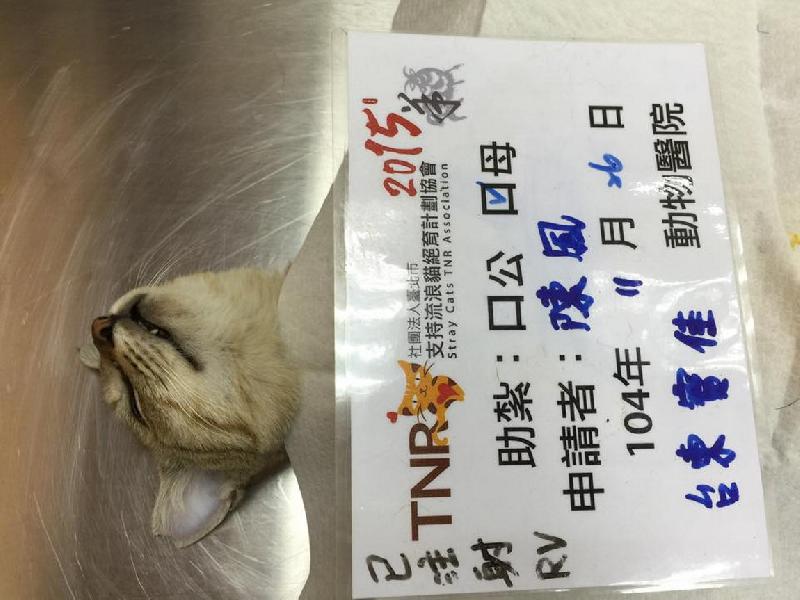 已注射RV
TNR
社團法人臺北市
支持流浪貓絕育計劃協會
Stray Cats TNR Association
2015
助紮：口公 口母
申請者：陳風
104年 11 月 26 日
台東寶佳 動物醫院